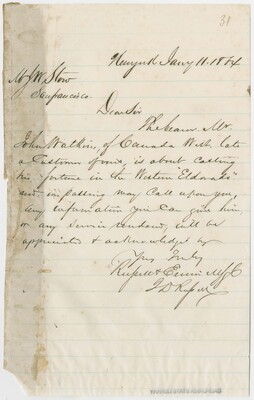 31
New York Jany 11. 1864
Mr J. W. Stow
Sanfrancisco
Dear Sir
The bearer Mr.
John Watkins, of Canada West, late
a Customer of ours, is about casting
his "fortune in the Western Eldorado"
and in passing may call upon you,
any information you can give him,
or any service rendered, will be
appreciated & acknowledged by
Yrs Truly
Russell & Erwin Mfg Co